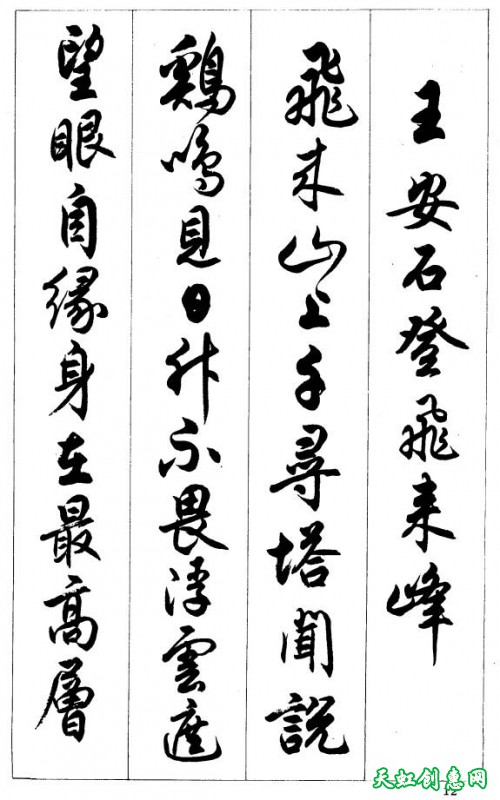 王安石登飛来峰
飛来山上千尋塔聞説
鷄鳴見日升不畏浮雲遮
望眼自緣身在最高層
天虹创意网
12